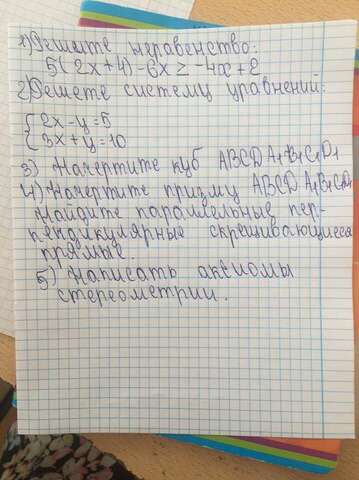 1) Решите неравенство:
5(2x+4)-6x ≥ -4x+2
2) Решете систему уравнений:
{2x-y=5
{3x+y=10
3) Начертите куб ABCDA1B1C1D1
4) Начертите призму ABCDA1B1C1D1
Найдите параллельные пер-
пендикулярные скрещивающиеся
прямые.
5) Написать аксиомы
стереометрии.